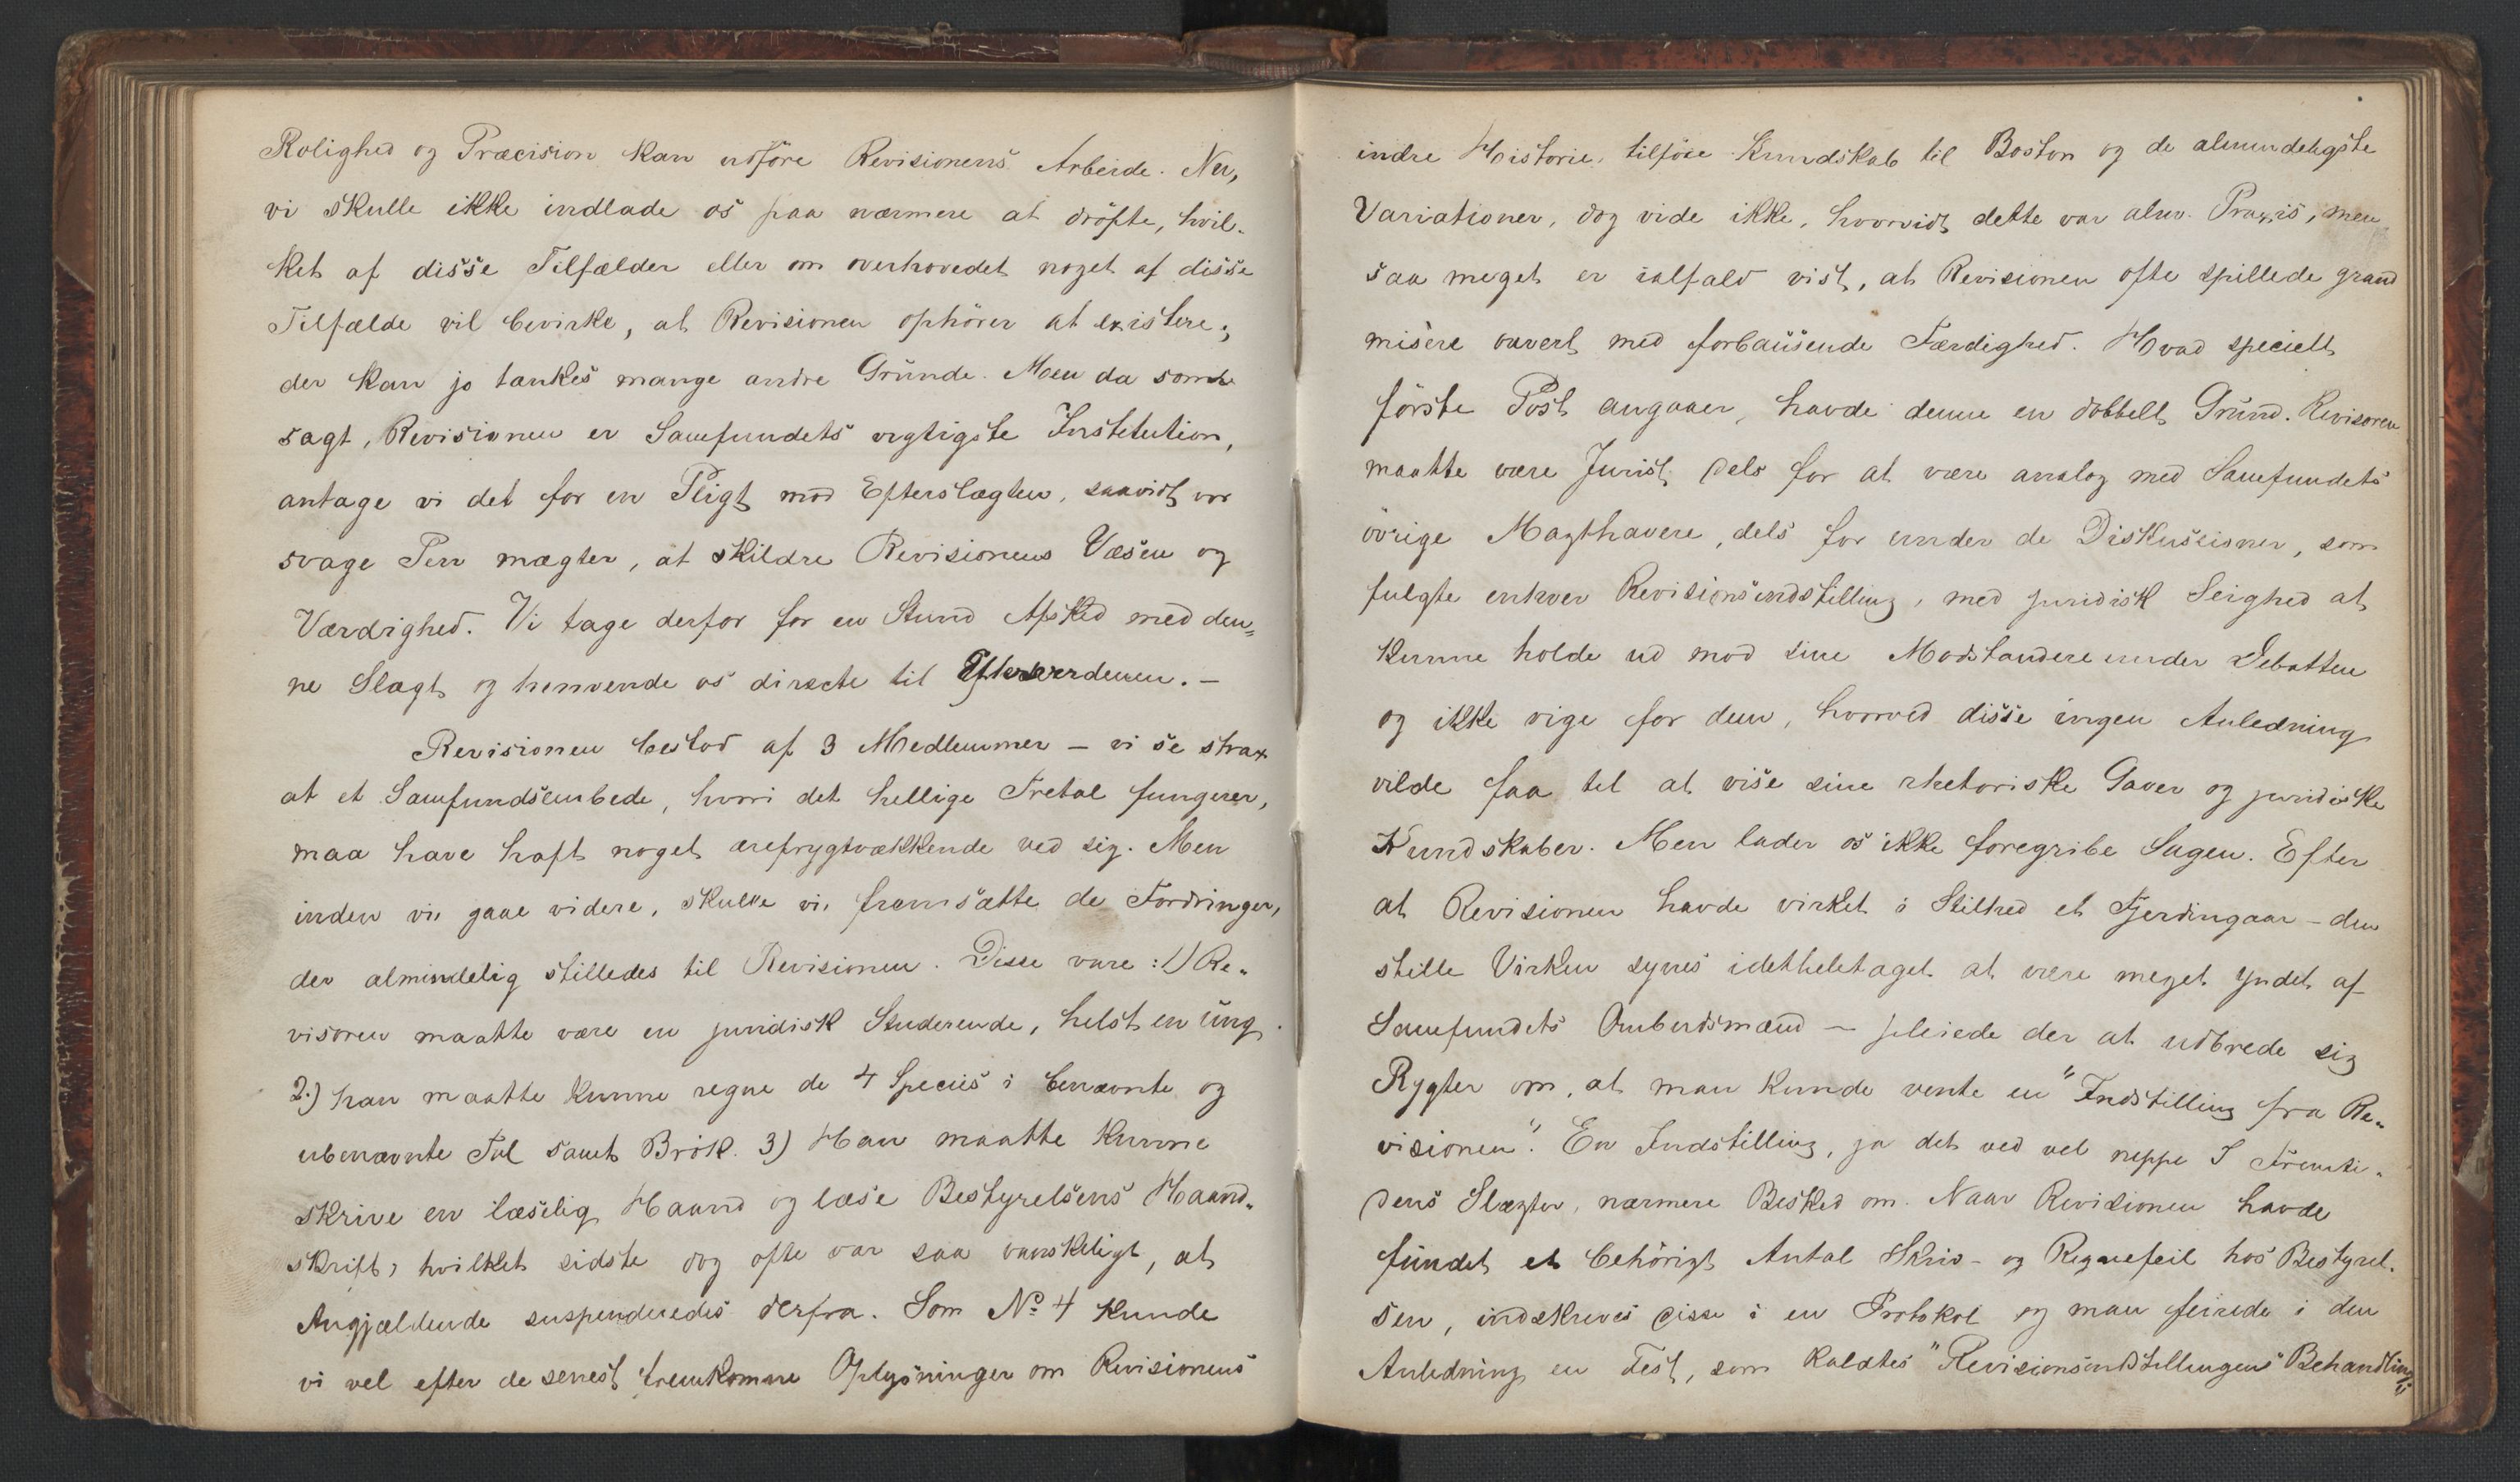 Rolighed og Præcision kan udföre Revisionens Arbeide. Nu,
vi skulle ikke indlade os paa nærmere at dröfte, hvil-
ket af disse Tilfælder eller om overhovedet noget af disse
Tilfælde vil bevirke, at Revisionen ophörer at existere;
der kan jo tænkes mange andre Grunde. Men da som
sagt, Revisionen er Samfundets vigtigste Institution,
antage vi det for en Pligt mod Efterslægten, saavidt vor
svage Pen mægter, at skildre Revisionens Væsen og
Værdighed. Vi tage derfor for en Stund Afsked med den-
ne Slægt og henvende os directe til Efterverdenen. –
Revisionen bestod af 3 Medlemmer – vi se strax
at et Samfundsembede, hvori det hellige Tretal fungerer,
maa have haft noget ærefrygtvækkende ved sig. Men
inden vi gaae videre, skulle vi fremsætte de Fordringer,
der almindelig stilledes til Revisionen. Disse vare: 1) Re-
visoren maatte være en juridisk Studerende, helst en ung.
2.) han maatte kunne regne de 4 Species i benævnte og
ubenævnte Tal samt Brök. 3) Han maatte kunne
skrive en læselig Haand og læse Bestyrelsens Haand-
skrift, hvilket sidste dog ofte var saa vanskeligt, at
Angjældende suspenderedes derfra. Som No 4 kunde
vi vel efter de senest fremkomne Oplysninger om Revisionens
indre Historie, tilföie Kundskab til Boston og de almindeligste
Variationer, dog vide ikke, hvorvidt dette var alm. Praxis, men
saa meget er ialfald vist, at Revisionen ofte spillede grand
misère ouvert med forbausende Færdighed. Hvad specielt
förste Post angaaer, havde denne en dobbelt Grund. Revisoren
maatte være Jurist dels for at være analog med Samfundets
övrige Magthavere, dels for under de Diskussioner, som
fulgte enhver Revisionsindstilling, med juridisk Seighed at
kunne holde ud mod sine Modstandere under Debatten
og ikke vige for dem, hvorved disse ingen Anledning
vilde faa til at vise sine rhetoriske Gaver og juridiske
Kundskaber. Men lader os ikke foregribe Sagen. Efter
at Revisionen havde virket i Stilhed et Fjerdingaar – den
stille Virken synes idetheletaget at være meget yndet af
Samfundets Ombudsmænd – pleiede der at udbrede sig
Rygter om, at man kunde vente en "Indstilling fra Re-
visionen". En Indstilling, ja det ved vel neppe I Fremti-
dens Slægter, nærmere Besked om. Naar Revisionen havde
fundet et behörigt Antal Skriv- og Regnefeil hos Bestyrel-
sen, indskreves disse i en Protokol og man feirede i den
Anledning en Fest, som kaldtes "Revisionsindstillingens Behandling";